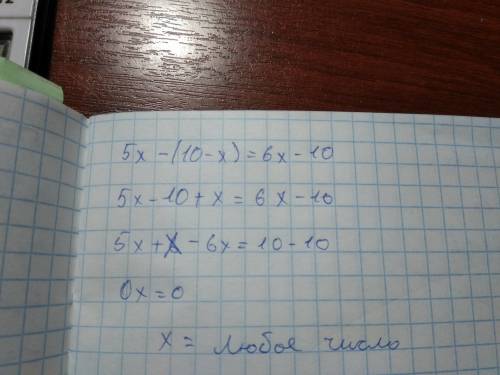 5x-(10-x)=6x-10
5x-10+x=6x-10
5x+x-6x=10-10
0x=0
x= любое число